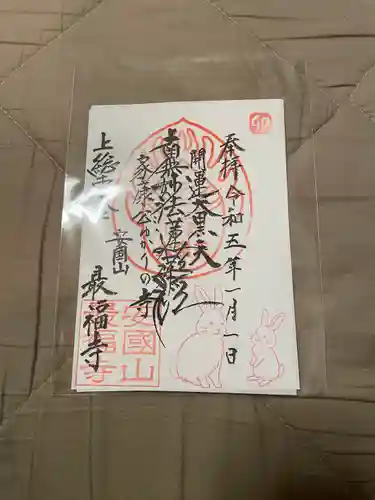 奉拝 令和五年一月一日
開運大黒天
南無妙法蓮華経
家康公ゆかりの寺
上総
安国山
最福寺
安國山
最福寺
卯